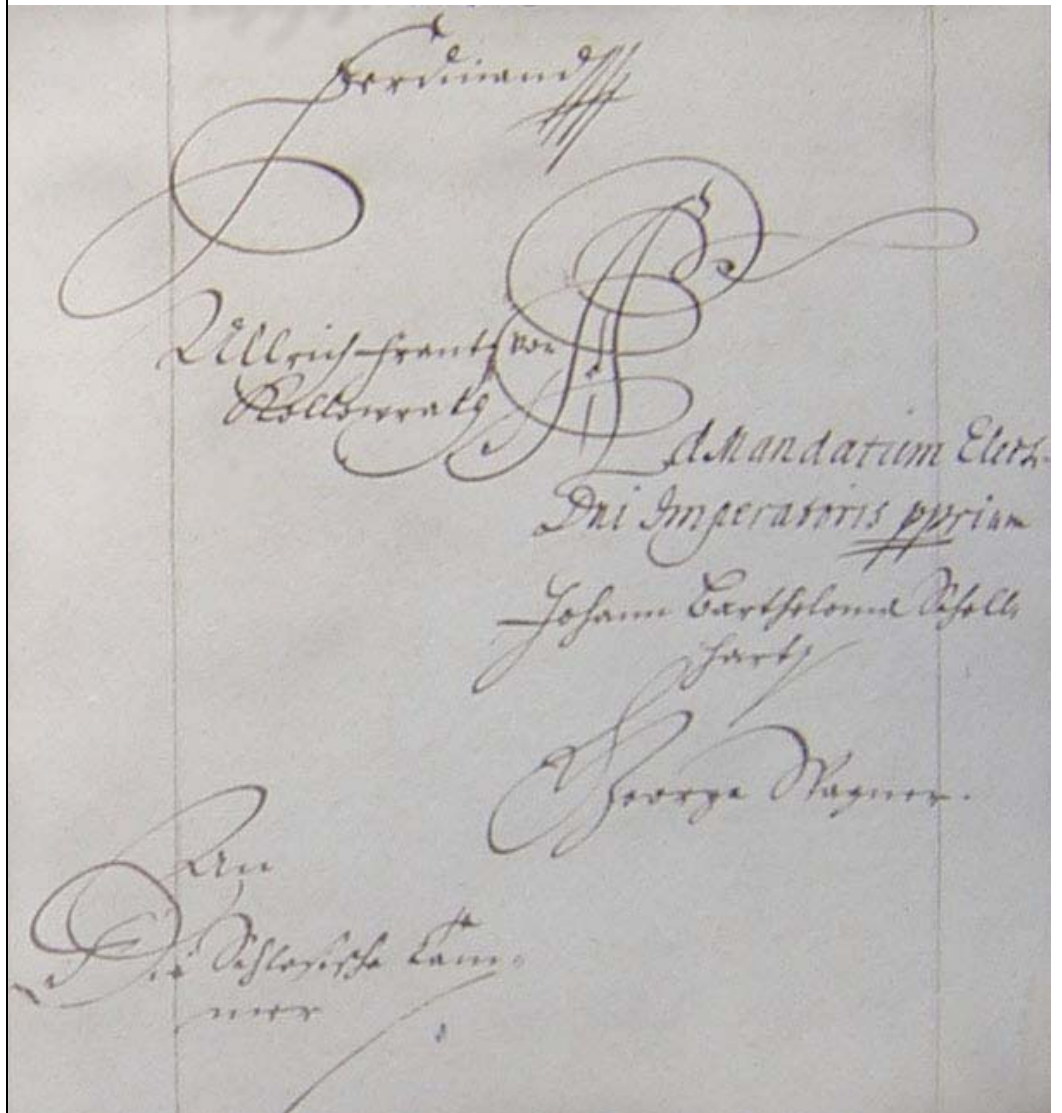 Ferdinand
Ullrich Frantz von
Kollowrath
Ad Mandatum Elect.
Dni Imperatoris pprium
Johann Bartholome Schell,
hart
George Wagner.
An
Die Schlesische Cam=
mer